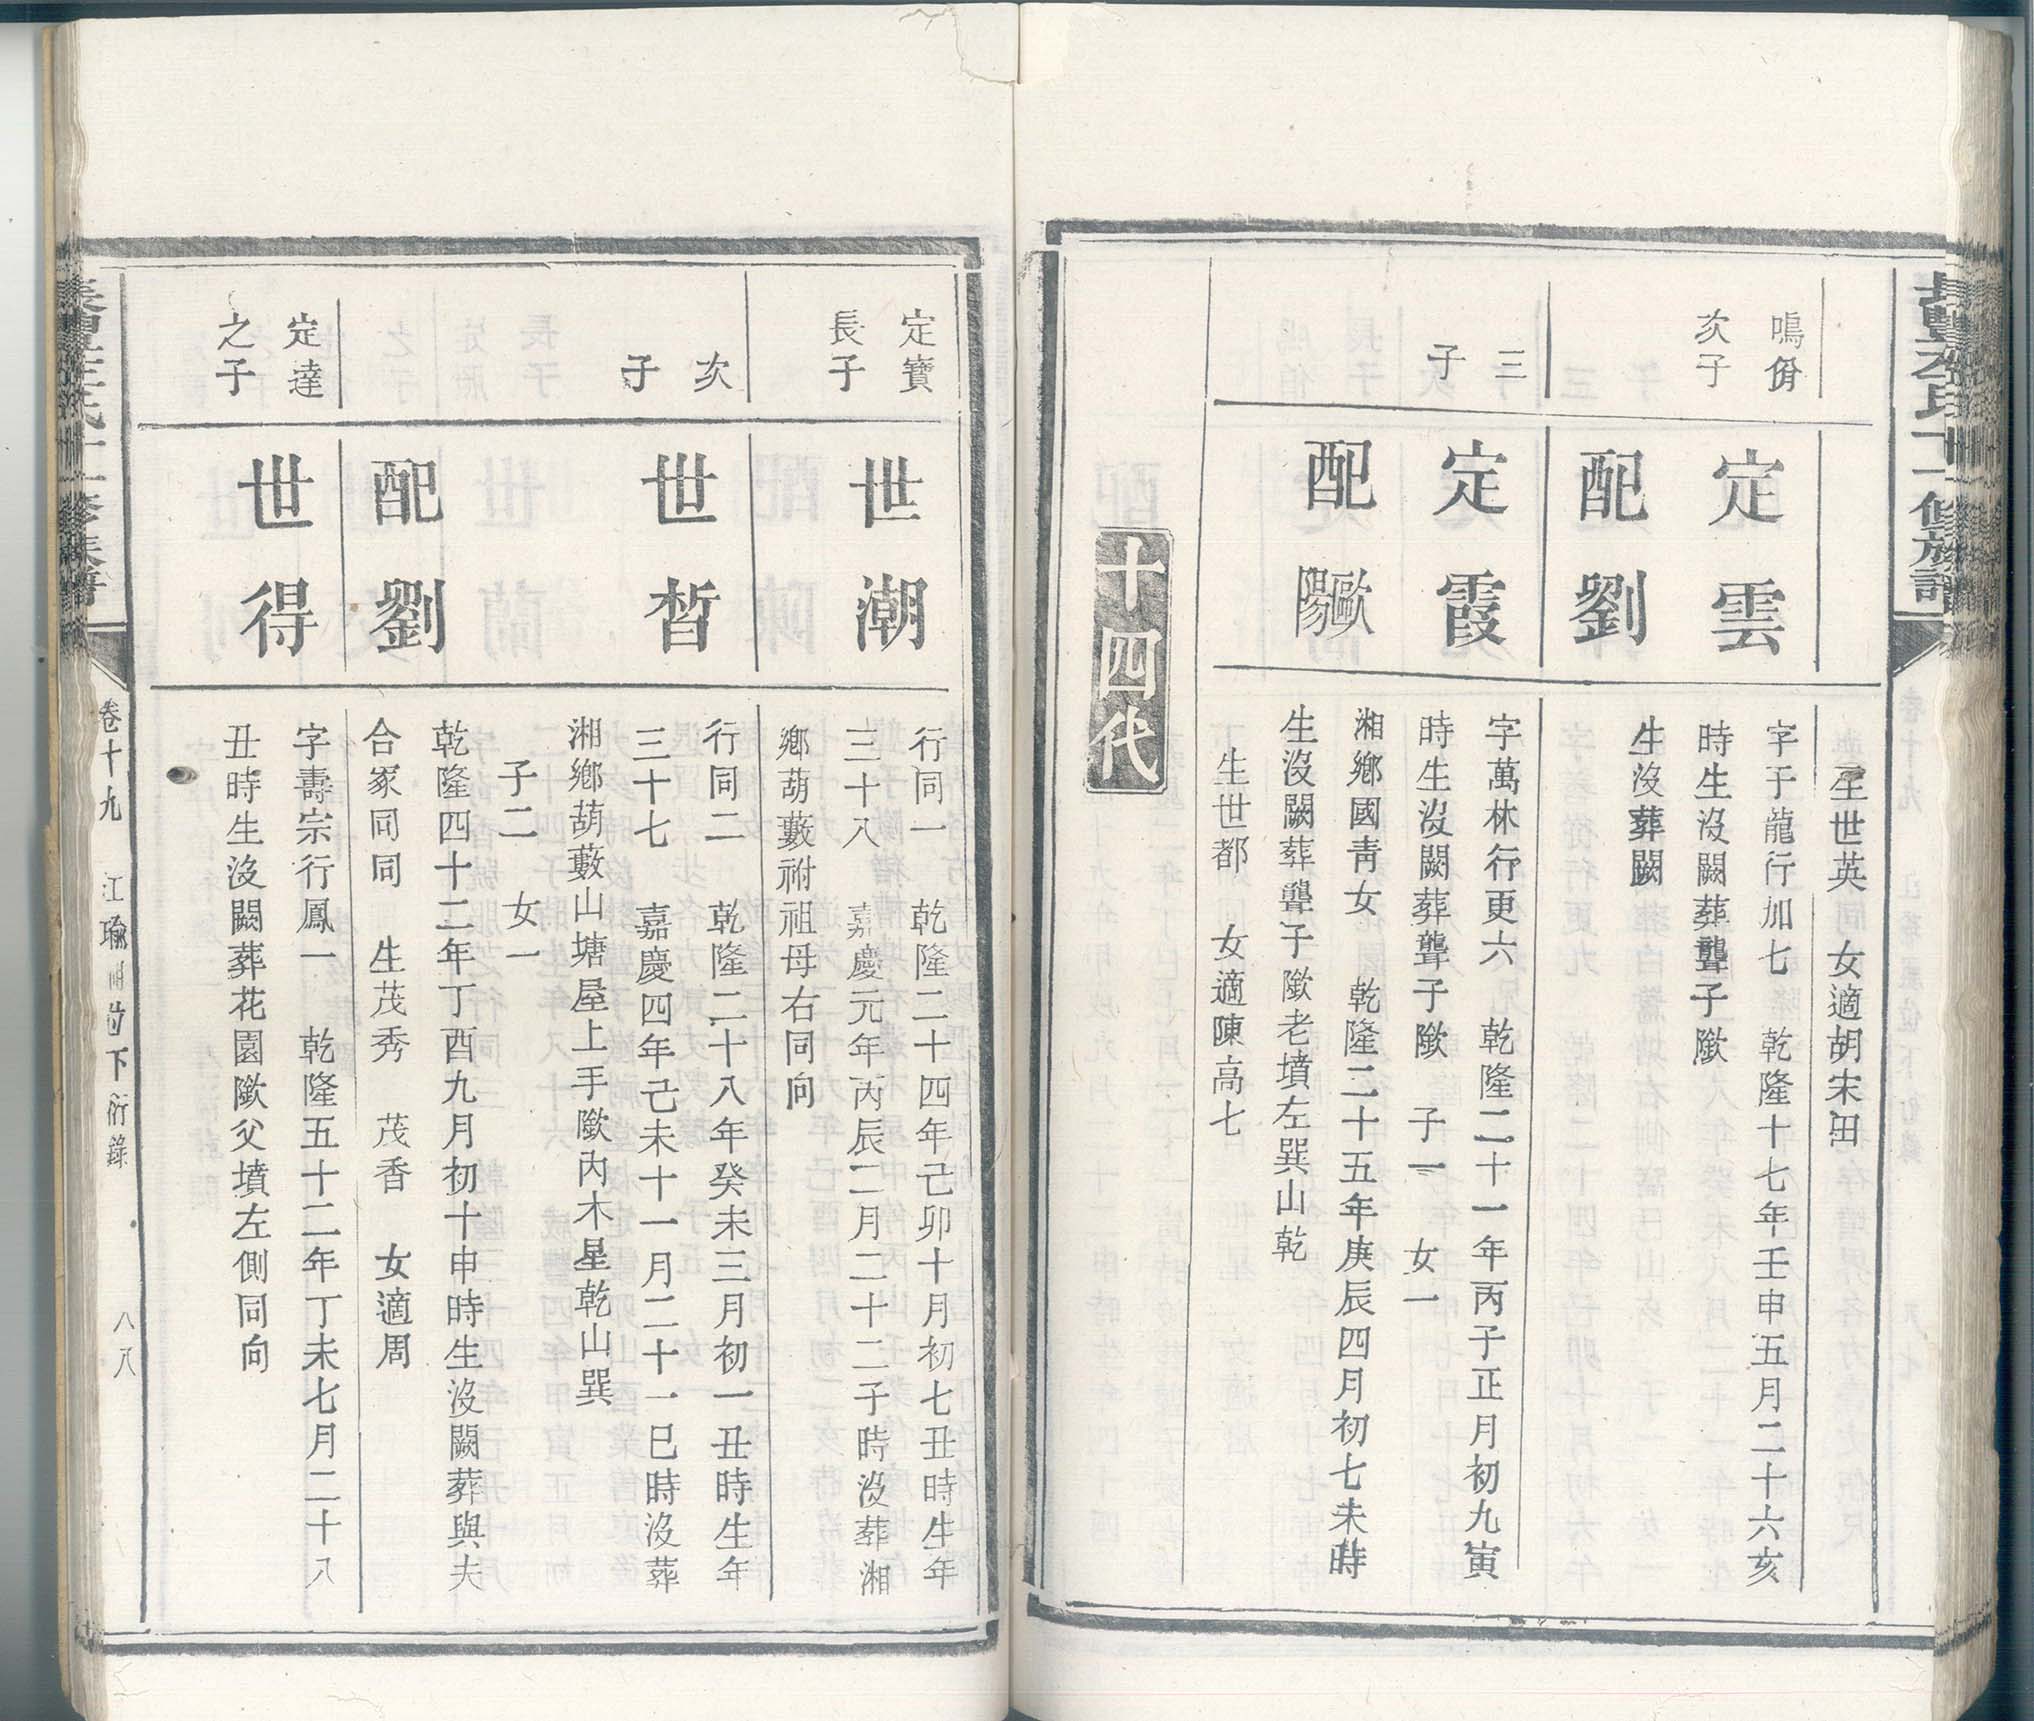 鳴
次子
定雲
生世英 女適胡宋田
字于龍行加七 乾隆十七年壬申五月二十六亥
時生沒闕葬聾子隞
配劉
生沒葬闕
三
子
定霞
字萬林行更六 乾隆二十一年丙子正月初九寅
時生沒闕葬聾子隞 子一 女一
配歐陽
湘鄉國青女 乾隆二十五年庚辰四月初七未時
生沒闕葬聾子隞老墳左巽山乾
生世都 女適陳高七
十四代
定寶
長子
世潮
行同一 乾隆二十四年己卯十月初七丑時生年
三十八 嘉慶元年丙辰二月二十二子時沒葬湘
鄉葫藪祔祖母右同向
次
子
世晳
行同二 乾隆二十八年癸未三月初一丑時生年
三十七 嘉慶四年己未十一月二十一巳時沒葬
湘鄉葫藪山塘屋上手隞內木星乾山巽
子二 女一
配劉
乾隆四十二年丁酉九月初十申時生沒闕葬與夫
合冢同同 生茂秀 茂香 女適周
定達
之子
世得
字壽宗行鳳一 乾隆五十二年丁未七月二十八
丑時生沒闕葬花園隞父墳左側同向
卷十九 江 下衍錄 八八